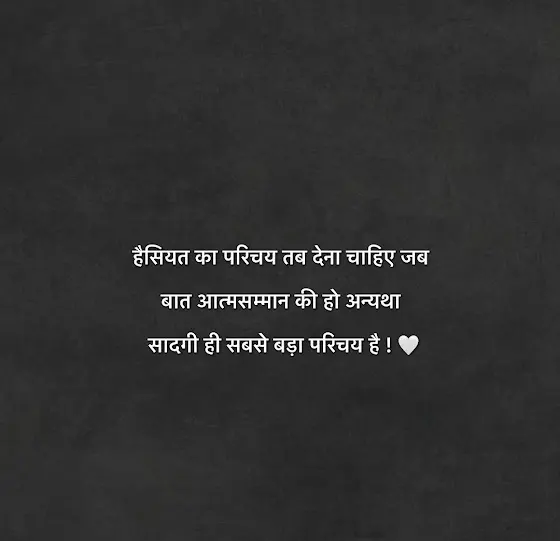 हैसियत का परिचय तब देना चाहिए जब
बात आत्मसम्मान की हो अन्यथा
सादगी ही सबसे बड़ा परिचय है ! 🤍